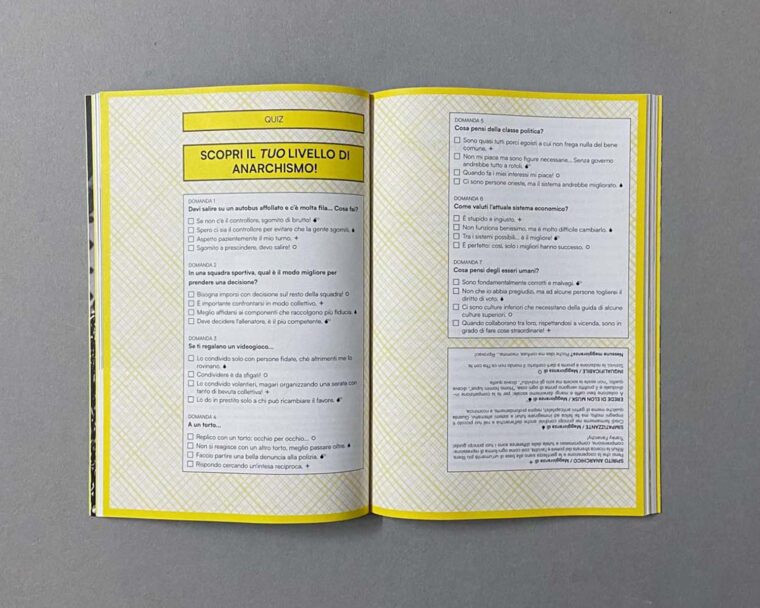 QUIZ
SCOPRI IL TUO LIVELLO DI
ANARCHISMO!
DOMANDA 1
Devi salire su un autobus affollato e c'è molta fila... Cosa fai?
Se non c'è il controllore, sgomito di brutto!
Spero ci sia il controllore per evitare che la gente sgomiti.
Aspetto pazientemente il mio turno. +
Sgomito a prescindere, devo salire!
DOMANDA 2
In una squadra sportiva, qual è il modo migliore per
prendere una decisione?
Bisogna imporsi con decisione sul resto della squadra!
È importante confrontarsi in modo collettivo. +
Meglio affidarsi ai componenti che raccolgono più fiducia.
Deve decidere l'allenatore, è il più competente.
DOMANDA 3
Se ti regalano un videogioco...
Lo condivido solo con persone fidate, ché altrimenti me lo
rovinano.
Condividere è da sfigati!
Lo condivido volentieri, magari organizzando una serata con
tanto di bevuta collettiva! +
Lo do in prestito solo a chi può ricambiare il favore.
DOMANDA 4
A un torto...
Replico con un torto: occhio per occhio...
Non si reagisce con un altro torto, meglio passare oltre.
Faccio partire una bella denuncia alla polizia.
Rispondo cercando un'intesa reciproca. +
DOMANDA 5
Cosa pensi della classe politica?
Sono quasi tutti porci egoisti a cui non frega nulla del bene
comune. +
Non mi piace ma sono figure necessarie... Senza governo
andrebbe tutto a rotoli.
Quando fa i miei interessi mi piace!
Ci sono persone oneste, ma il sistema andrebbe migliorato.
DOMANDA 6
Come valuti l'attuale sistema economico?
È stupido e ingiusto. +
Non funziona benissimo, ma è molto difficile cambiarlo.
Tra i sistemi possibili... è il migliore!
È perfetto: così, solo i migliori hanno successo.
DOMANDA 7
Cosa pensi degli esseri umani?
Sono fondamentalmente corrotti e malvagi.
Non che io abbia pregiudizi, ma ad alcune persone toglierei il
diritto di voto.
Ci sono culture inferiori che necessitano della guida di alcune
culture superiori.
Quando collaborano tra loro, rispettandosi a vicenda, sono in
grado di fare cose straordinarie! +
SPIRITO ANARCHICO / Maggioranza di +
SIMPATIZZANTE / Maggioranza di
EREDE DI ELON MUSK / Maggioranza di
INQUALIFICABILE / Maggioranza di
Nessuna maggioranza?